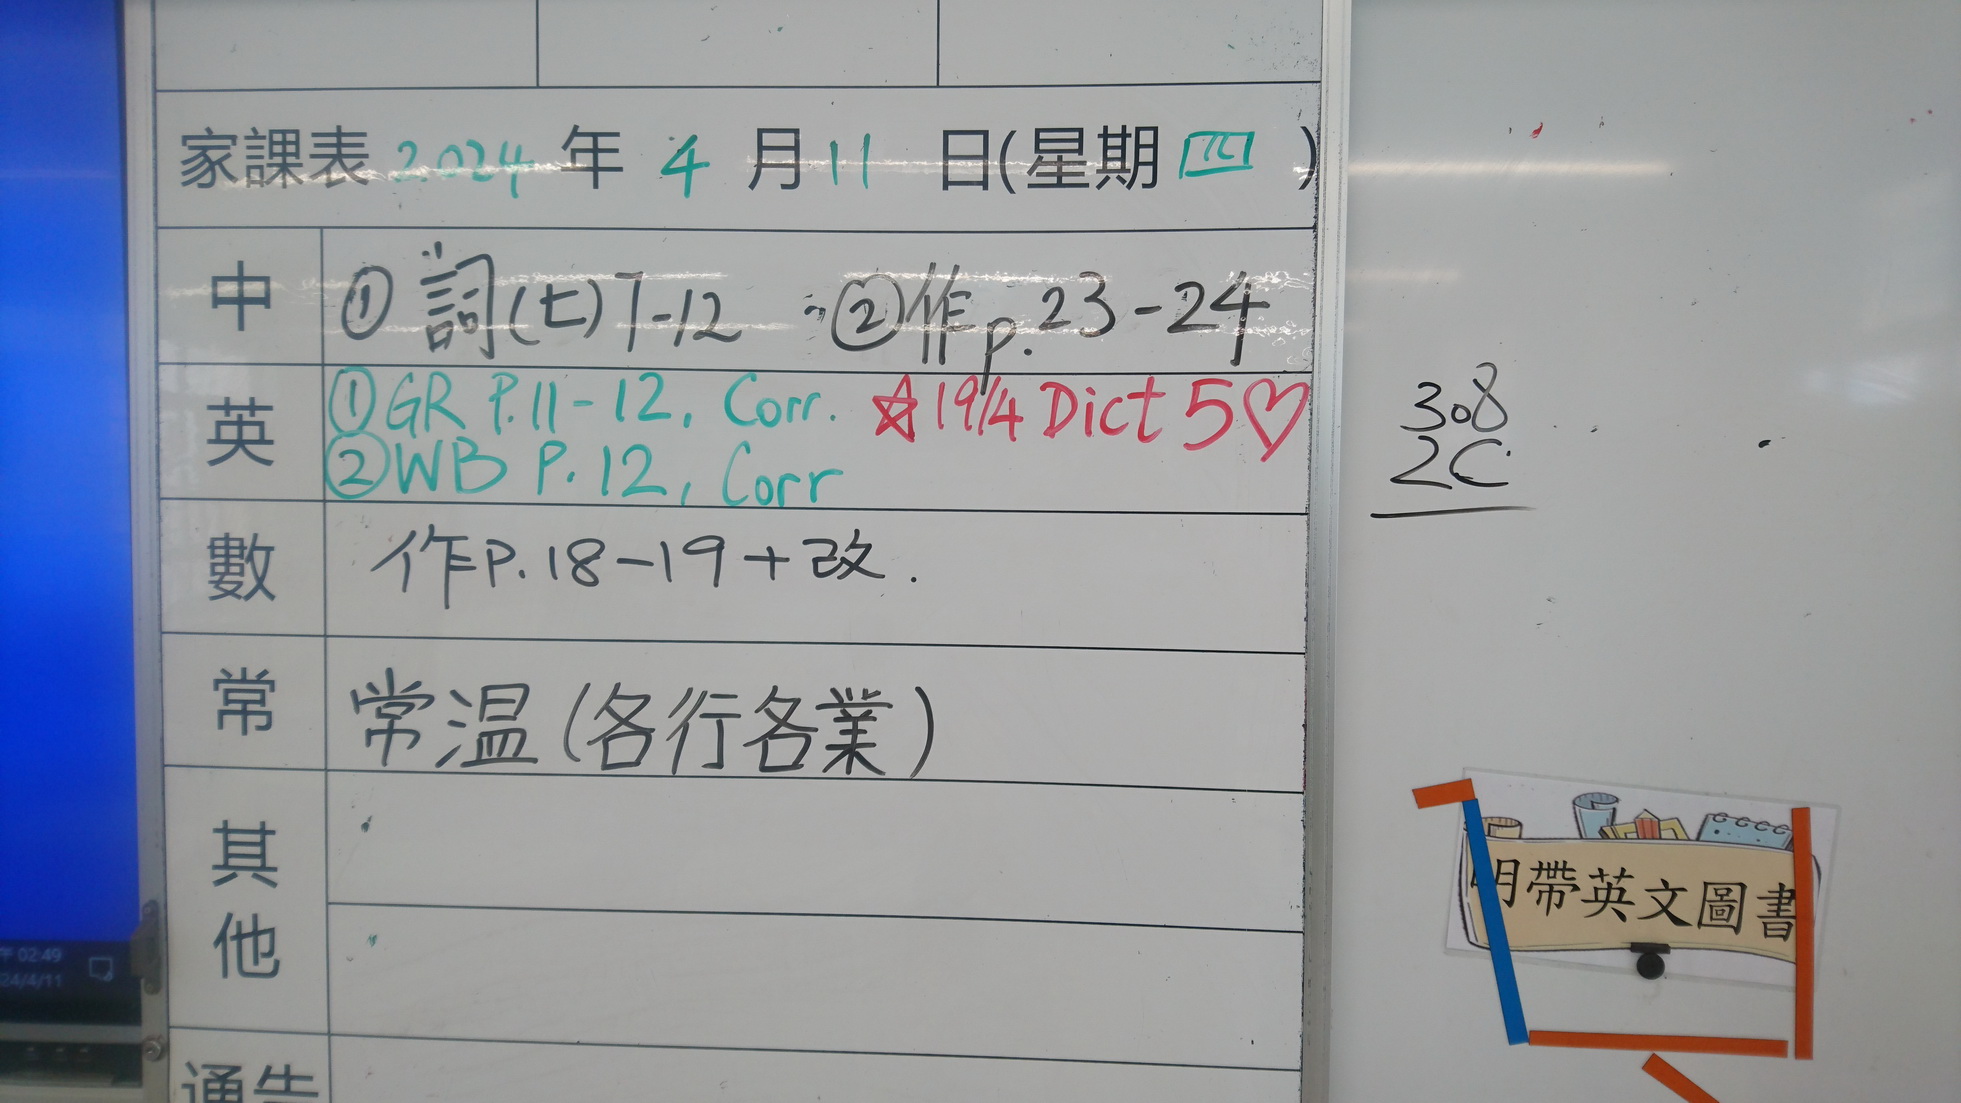 家課表 2024 年 4 月 11 日(星期 四 )
中 ① 詞(七) 7-12 ②作 p.23-24
英 ①GR P.11-12, Corr. ☆19/4 Dict 5♡
②WB P.12, Corr
數 作P.18-19+改.
常 常温(各行各業)
其他
通告
308
2C
明帶英文圖書
午 02:49
24/4/11